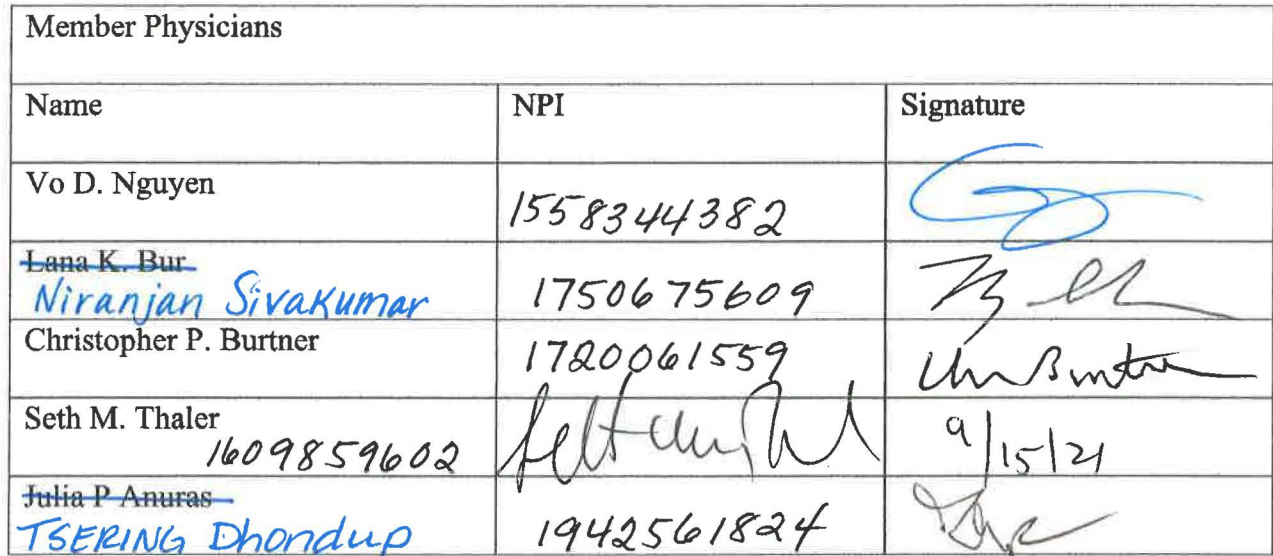 Member Physicians
Name NPI Signature
Vo D. Nguyen 1558344382
Lana K. Bur
Niranjan Sivakumar 1750675609
Christopher P. Burtner 1720061559
Seth M. Thaler
1609859602 9/15/21
Julia P Anuras
TSERING Dhondup 1942561824